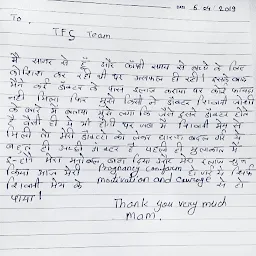 Date 5/04/2019
To,
TFC Team
मै सागर से हूँ और काफी समय से बच्चे के लिए
कोशिश कर रही थी पर असफल हो रही। इसके बाद
मैने कई डॉक्टर के पास इलाज कराया पर कोई फायदा
नही मिला फिर मुझे किसी ने डॉक्टर शिवानी जोशी
के बारे में बताया मुझे लगा कि जैसे इतने डॉक्टर होते
है वैसी ही ये भी होगी पर जब मै शिवानी मैम से
मिली तो मेरी डॉक्टरो को लेकर धारणा बदल गई ये
बहुत ही अच्छी डॉक्टर है पहली ही मुलाकात में
इन्होंने मेरा मनोबल बढ़ा दिया और मेरा इलाज शुरू
किया आज मेरी Pregnancy conform हो गई ये सिर्फ
शिवानी मैम के motivation and courage से हो
पाया!
Thank you very much
Mam.